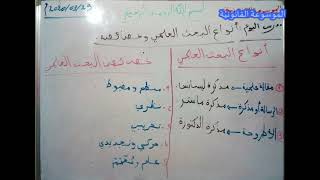 الموسوعة القانونية
2020/03/29
درس اليوم: أنواع البحث العلمي وخصائصه
أنواع البحث العلمي
① مقالة علمية ← مذكرة ليسانس
② الرسالة أو مذكرة ← مذكرة ماستر
③ الأطروحة ← مذكرة الدكتورة
خصائص البحث العلمي
منظم ومضبوط
نظري
تجريبي
حركي وتجديدي
عام ومعمم